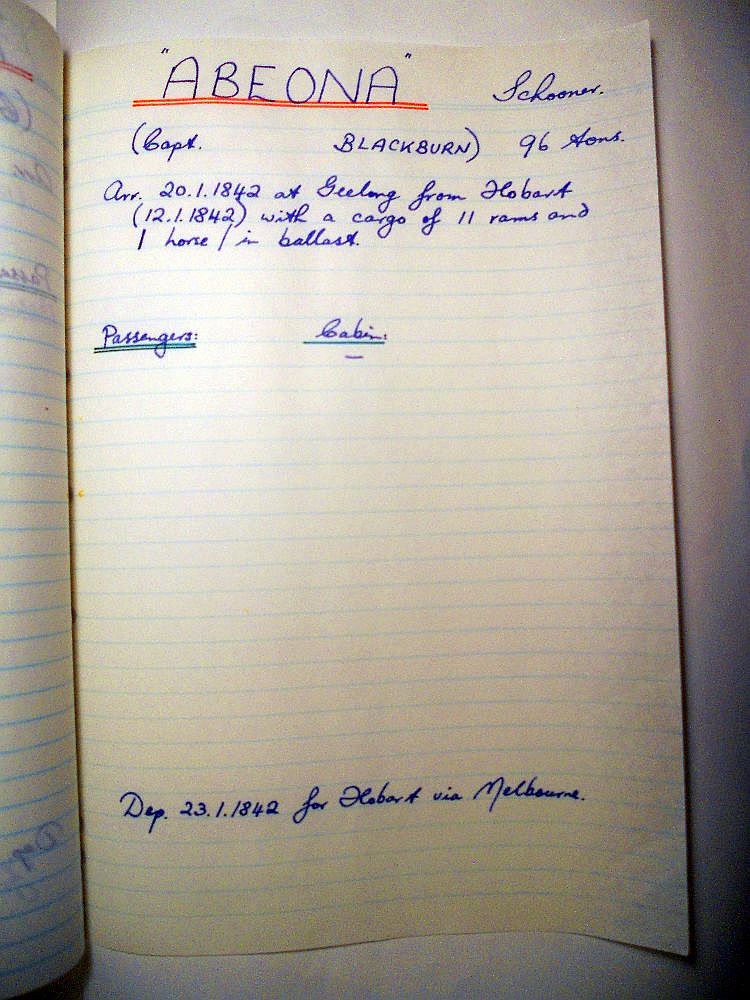 "ABEONA" Schooner.
(Capt. BLACKBURN) 96 tons.
Arr. 20.1.1842 at Geelong from Hobart
(12.1.1842) with a cargo of 11 rams and
1 horse / in ballast.
Passengers: Cabin:
—
Dep. 23.1.1842 for Hobart via Melbourne.